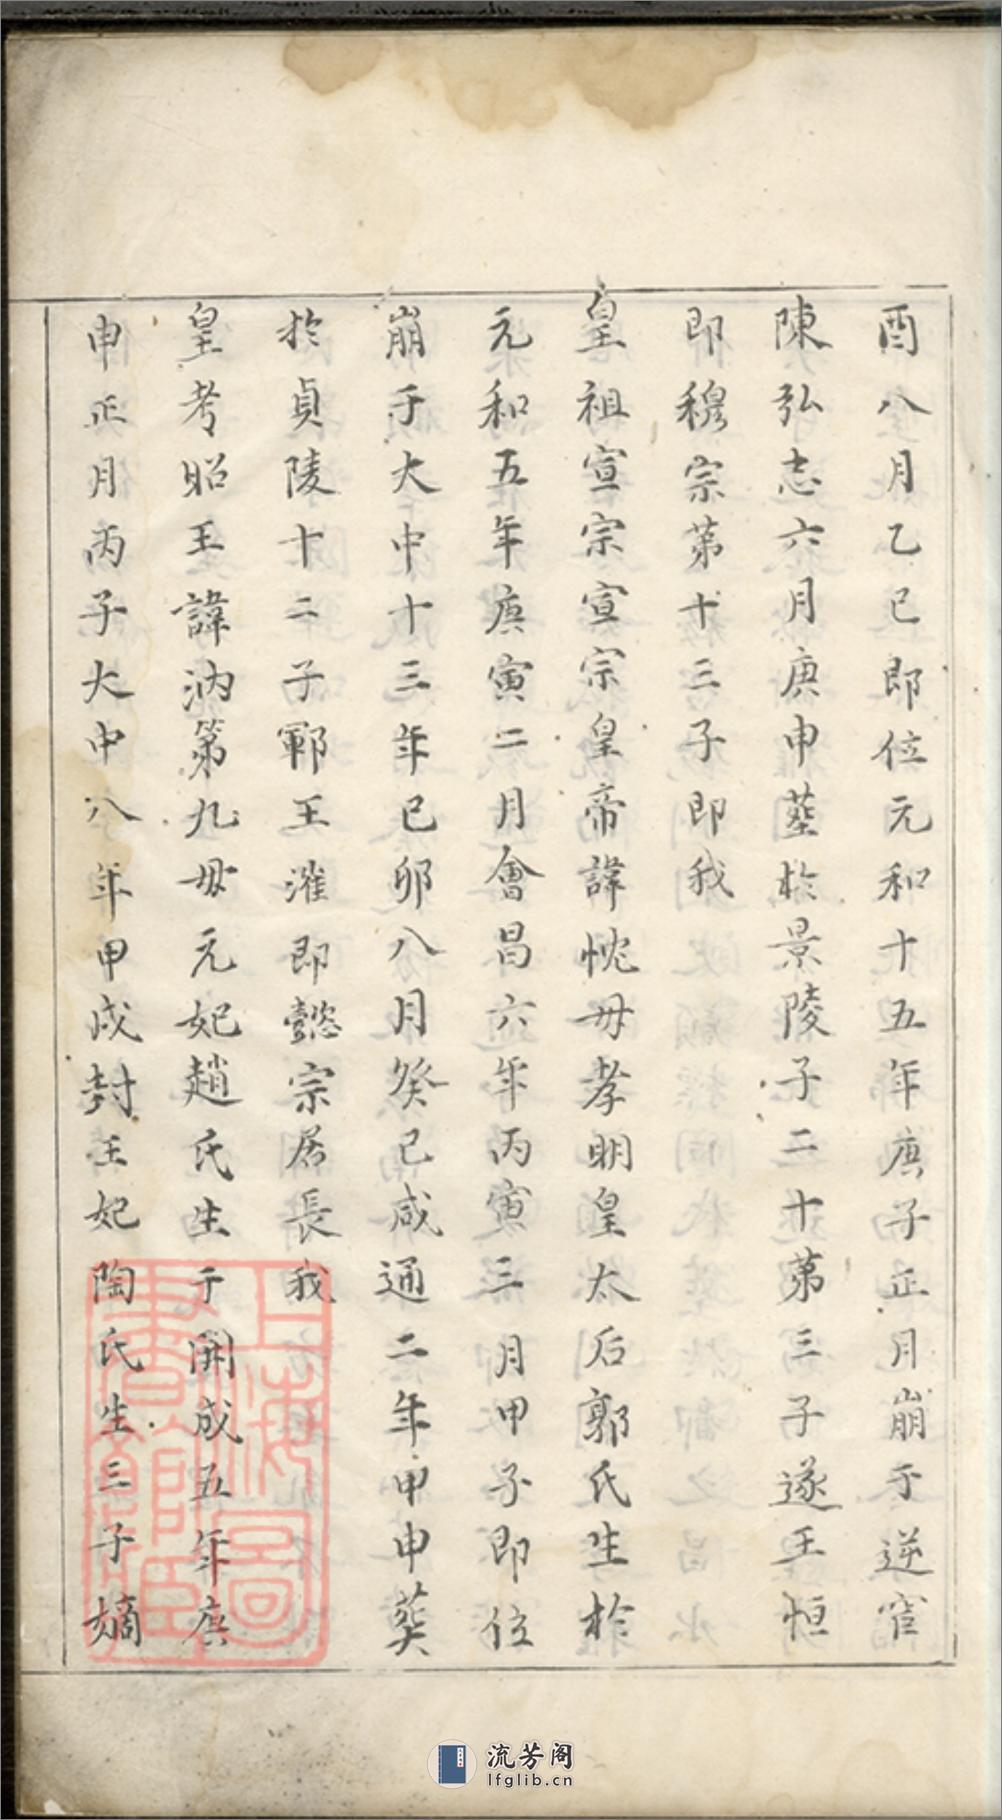 酉八月乙巳即位元和十五年庚子正月崩于逆宦
陳弘志六月庚申葬於景陵子二十第三子遂王恒
即穆宗第十三子即我
皇祖宣宗宣宗皇帝諱忱毋孝明皇太后郭氏生於
元和五年庚寅二月會昌六年丙寅三月甲子即位
崩于大中十三年已卯八月癸已咸通二年甲申葬
於貞陵十二子鄆王漼即懿宗居長我
皇考昭王諱汭第九毋元妃趙氏生于開成五年庚
申正月丙子大中八年甲戌封王妃陶氏生三子嫡
上海圖書館藏
流芳阁
lfglib.cn